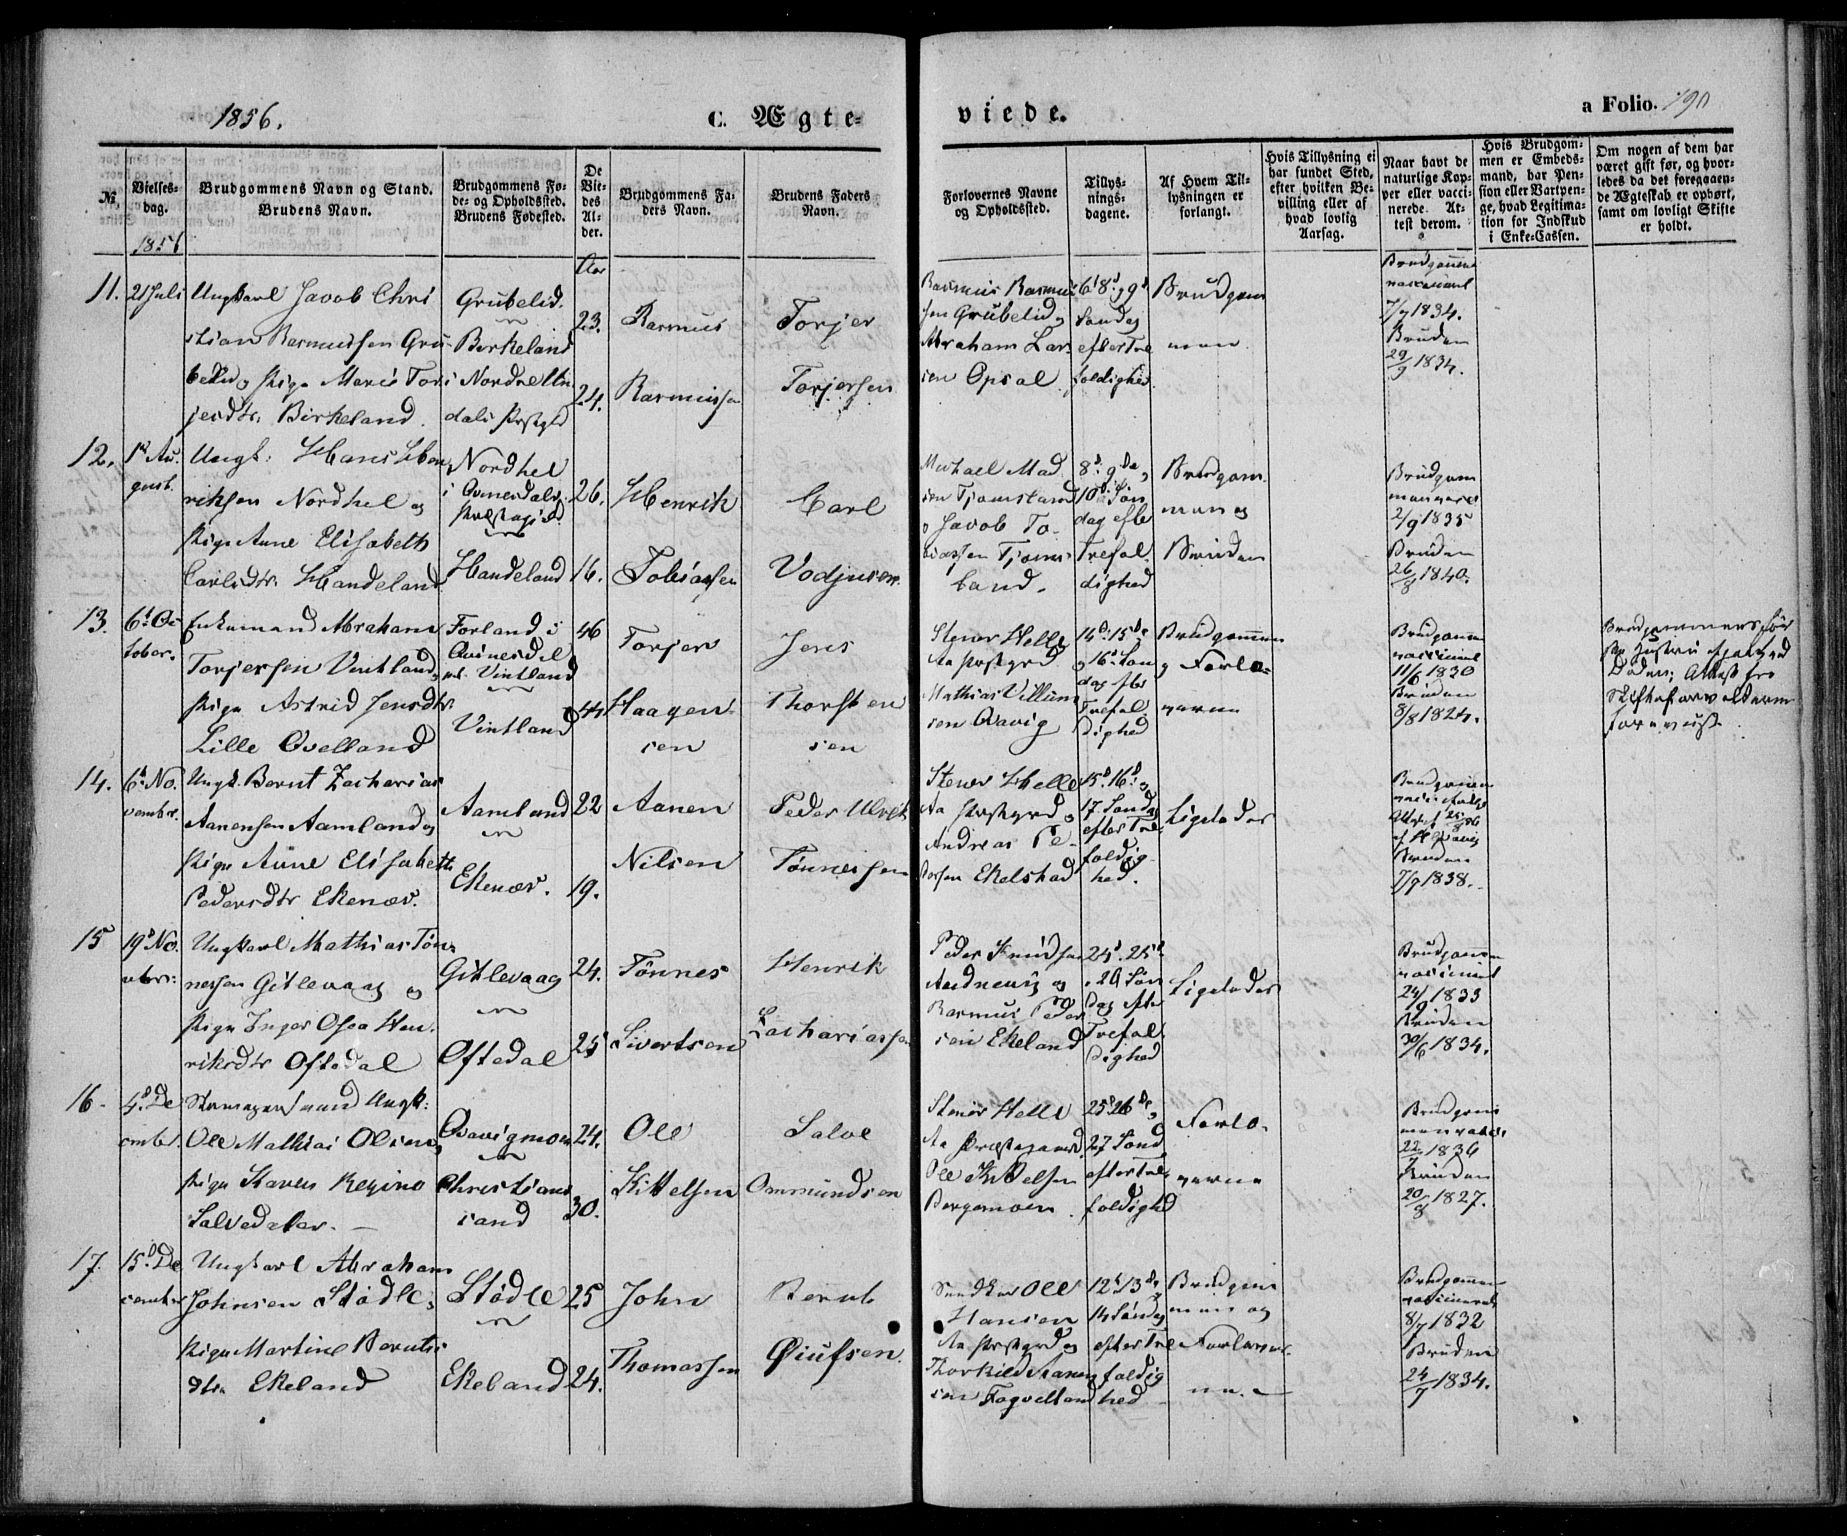 1856.
C. Ægte-
viede.
a Folio. 190
No.
Vielses-
dag.
1856
Brudgommens Navn og Stand.
Brudens Navn.
Brudgommens Fø-
de- og Opholdssted.
Brudens Fødested.
De
Vie-
des
Al-
der.
Aar
Brudgommens Fa-
ders Navn.
Brudens Faders
Navn.
Forlovernes Navne
og Opholdssted.
Tillys-
nings-
dagene.
Af Hvem Til-
lysningen er
forlangt.
Hvis Tillysning ei
har fundet Sted,
efter hvilken Be-
villing eller af
hvad lovlig
Aarsag.
Naar havt de
naturlige Kop-
per eller vacci-
nerede. At-
test derom.
Hvis Brudgom-
men er Embeds-
mand, har Pen-
sion eller Vartpen-
ge, hvad Legitima-
tion for Indskud
i Enke-Cassen.
Om nogen af dem har
været gift før, og hvor-
ledes da det foregaaen-
de Ægteskab er ophørt,
samt om lovligt Skifte
er holdt.
11.
21 Juli
Ungkarl Jacob Chri
stian Rasmussen Gru-
belid, Pige Tor-
jesdtr. Birkeland.
Grubelid.
Birkeland
i
23.
24.
Rasmus
Rasmussen
Torjer
Torjersen
Rasmus Rasmus
sen Grubelid,
Abraham Lar
sen Opsal
6' 8d, 9d
Søndag
efter Tre
foldighed
Brudgom
men.
Brudgommen
vaccineret
7/9 1834.
Bruden
29/9 1834.
12.
1st Au-
gust.
Ungk: Hans Hen
riksen Nordhel og
Pige Anne Elisabeth
Carlsdtr. Handeland
Nordhel
i Qvinesdals
Præstegjeld.
Handeland
26.
16.
Henrik
Tobiassen
Carl
Michael Mad
sen Tjomsland
o Jacob To-
biassen Tjoms-
land.
8d, 9de,
10d Søn
dag efter
Trefol
dighed
Brudgom
men og
Bruden
Brudgom
men vacci
2/9 1835
Bruden
26/8 1840.
13.
6t Oc
tober.
Enkemand Abraham
Torjersen Vintland,
Pige Astrid Jensdtr.
Lille Qvelland
Forland i
Qvinesdal
Vintland
Vintland
46
44
Torjer
Haagen
sen
Jens
Thorsten
sen
Stener Helle
Aa Prstgrd
Mathias Villum
sen Qvavig
14d, 15de
, 16d Søn
dag efter
Trefol
dighed
Brudgommen
, Forlo-
verne
Brudgommen
vaccineret
11/6 1820
Bruden
8/8 1824.
Brudgommens før
ste Hustru
Døden; Attest fra
Skifteforvalteren
forevist.
14.
6t No.
vember.
Ungk. Bernt Zacharias
Aanensen Aamland og
Pige Anne Elisabeth
Pedersdtr Ekenæs.
Aamland
Ekenæs.
22
19.
Aanen
Nilsen
Peder
Tønnessen
Stener Helle
Aa Prstgrd o
Andreas Pe-
dersen Ekelstad
15d, 16d, o
17 Søndag
efter Tre-
foldig-
hed.
Ligeledes
Bruden
7/9 1838.
15
19d No.
vbr.
Ungkarl Mathias Tøn-
nessen Gitlevaag og
Pige Inger Hen.
riksdtr Oftedal
Gitlevaag
Oftedal
24.
25
Tønnes
Sivertsen
Henrik
Zachariassen
Peder Knudsen
og
Rasmus Peder
sen Ekeland
24d, 25d
, 26 Søn
dag efter
Trefol
dighed
Ligeledes
Brudgommen
vaccineret
1833
Bruden
30/6 1834.
16.
4d De
cmbr.
Ungk:
Ole Mathias Olsen,
Pige Karen Regine
Salvedatter.
Qvavigmoen
Christian
sand
24.
30.
Ole
Kittelsen
Salve
Ommundsen
Stener Helle
Aa Præstegaard.
Ole Kittelsen
Bergemoen.
25d 26de,
27 Sønd
efter Tre-
foldighd
Forlo-
verne
Brudgom
men vacc.
22/7 1836
Bruden
20/8 1827.
17.
15d De
cember
Ungkarl Abraham
Johnsen Stødle,
Pige Martine Bernts
dtr Ekeland
Stødle
Ekeland
25
24.
John
Thomassen
Bernt
Øiufsen.
Ole
Hansen
Aa Prstgrd og
Thorkild Aanen
sen Fagvelland
12t, 13de,
14 Søndag
efter Tre
foldig
hed
Brudgom
men og
Forlover-
ne.
Brudgommen
vaccineret
8/7 1832
Bruden
24/7 1834.